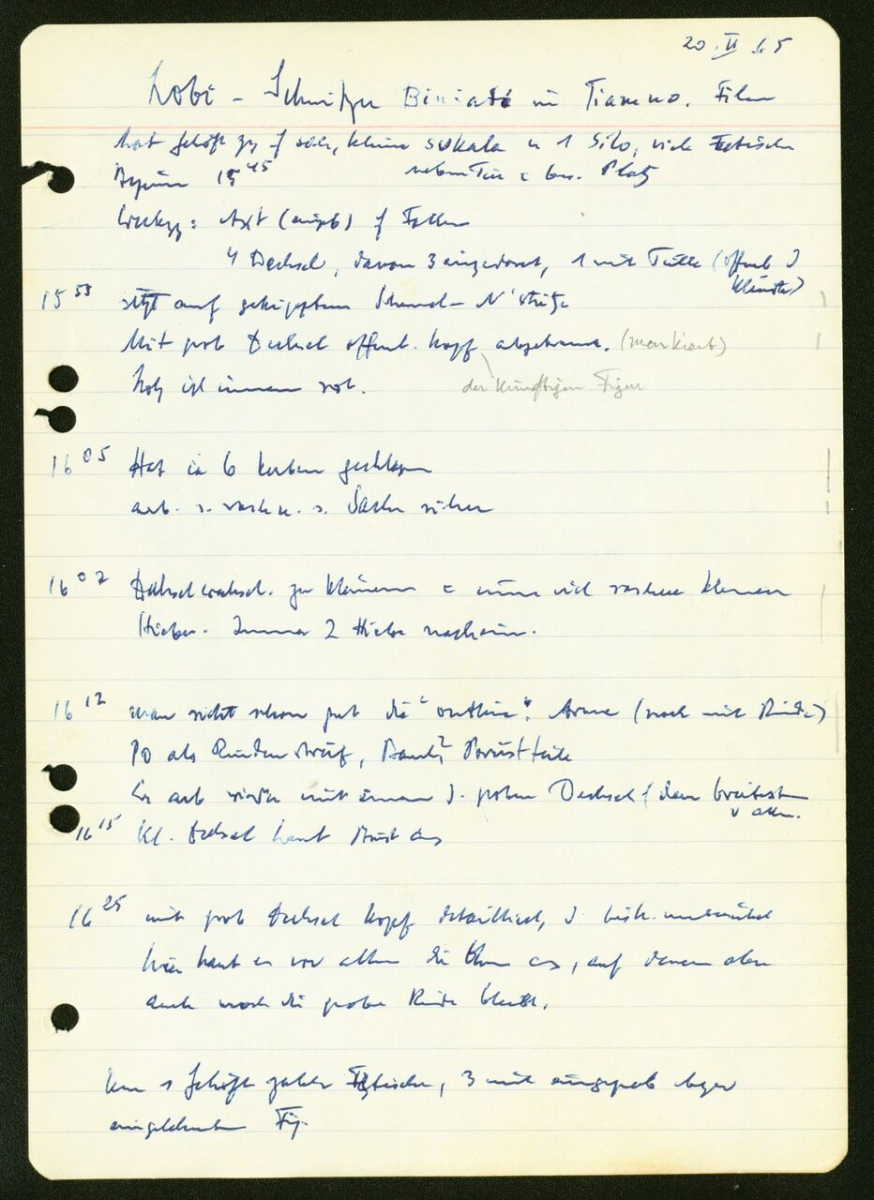 20. II. 65
Lobi - Schnitzer Biniaté in Tiameno. Film
hat Gehöft, kleine sukala u 1 Silo, viele Fetische
Beginn 15 45 neben Tür Platz
Werkzg: Axt f Fällen
4 Dechsel, davon 3 eingedornt, 1 mit Tülle (offenb d kleinste)
15 53 sitzt auf gekipptem Schemel
Mit grob Dechsel offenb. Kopf abgetrennt. (markiert)
der künftigen Figur
Holz ist innen rot.
16 05 Hat ca 6 Kerben geschlagen
arb. s. rasch u. s. Sache sicher
16 07 Dechselwechsel. zu kleinerem nun viel rascher kleinen
Hieben. Immer 2 Hiebe nacheinr.
16 12 man sieht schon gut die "outline". Arme (noch mit Rinde)
PO als Rindenstreif, Bauch, Brustteile
Er arb wieder mit einem d. großen Dechsel dem breitesten
v allen.
16 15 Kl. Dechsel haut Brust aus
16 25 mit grob Dechsel Kopf detailliert, d. bish. unberührt
hier haut er vor allem die Ohren aus, auf denen aber
auch noch die grobe Rinde bleibt.
Im Gehöft Fetische, 3 mit
Fig.